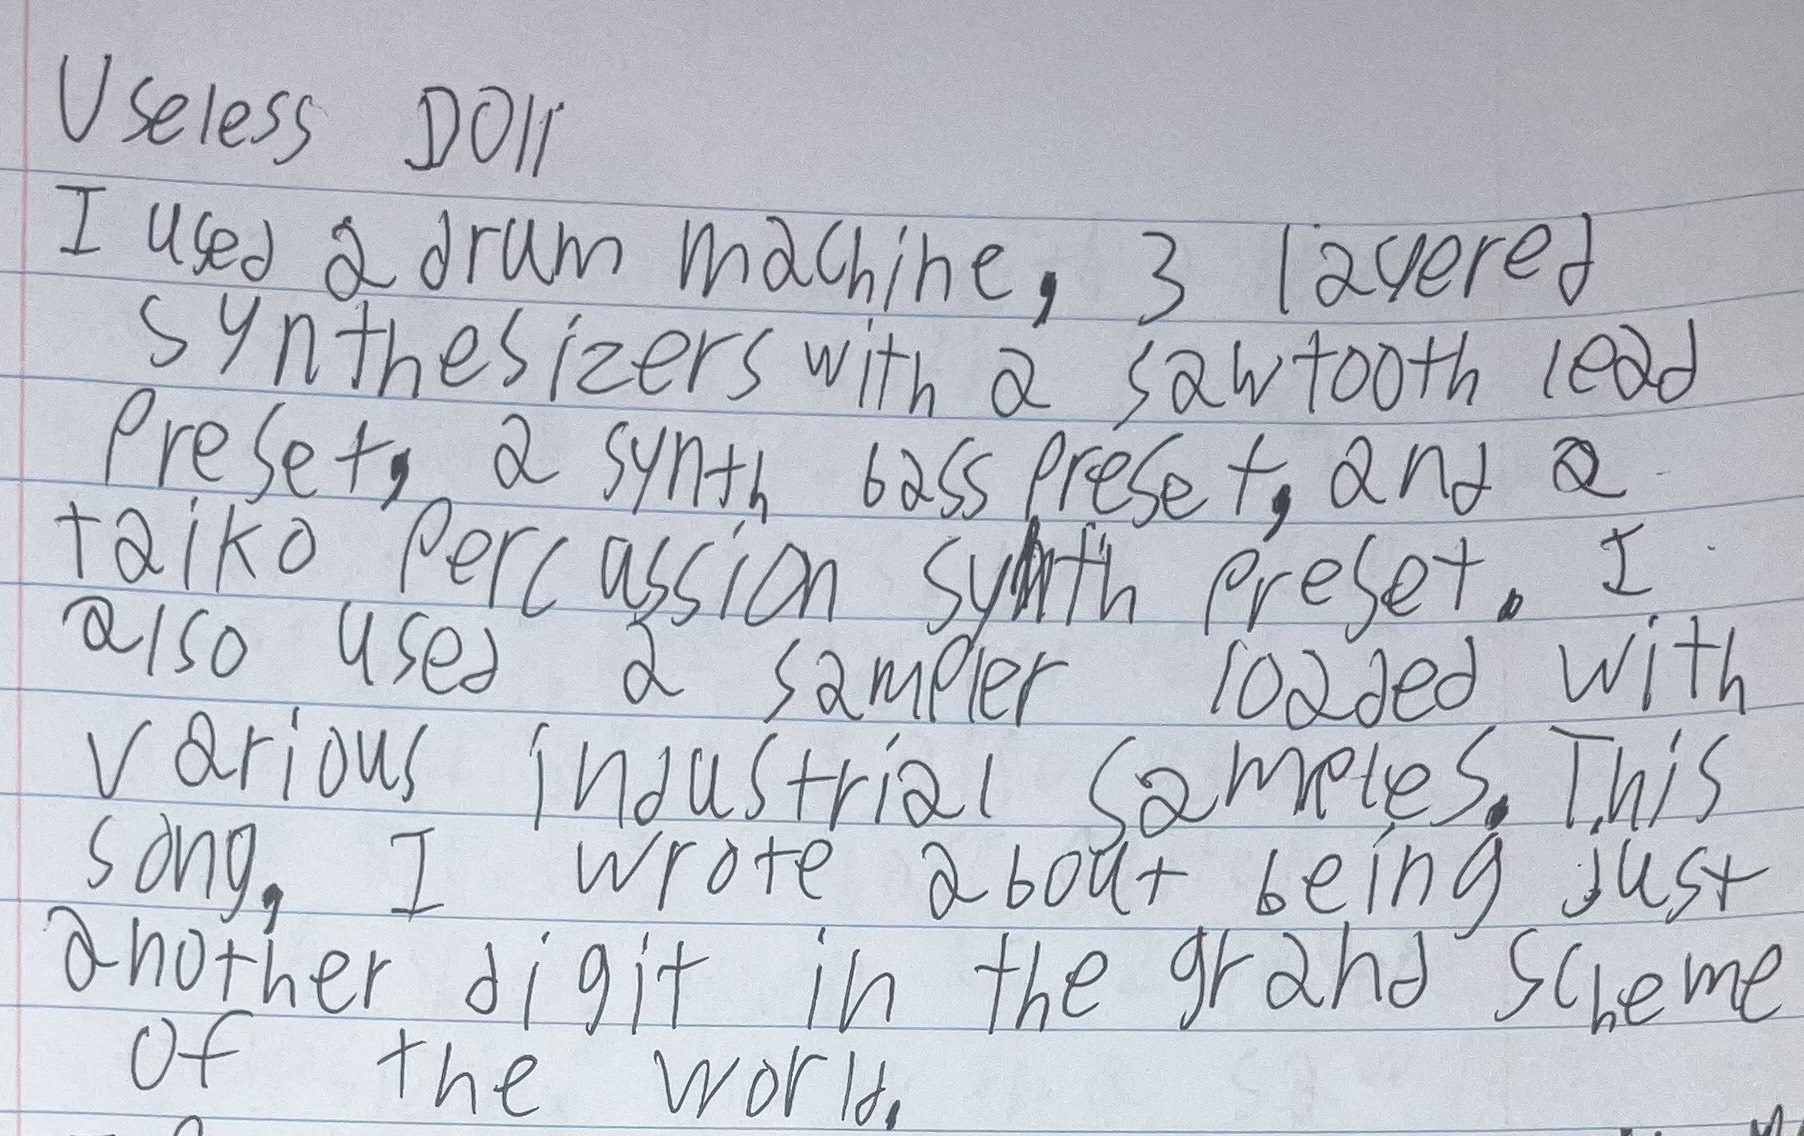 Useless Doll
I used a drum machine, 3 layered
synthesizers with a sawtooth lead
preset, a synth bass preset, and a
taiko percassion synth preset. I
also used a sampler loaded with
various industrial samples. This
song, I wrote about being just
another digit in the grand scheme
of the world.